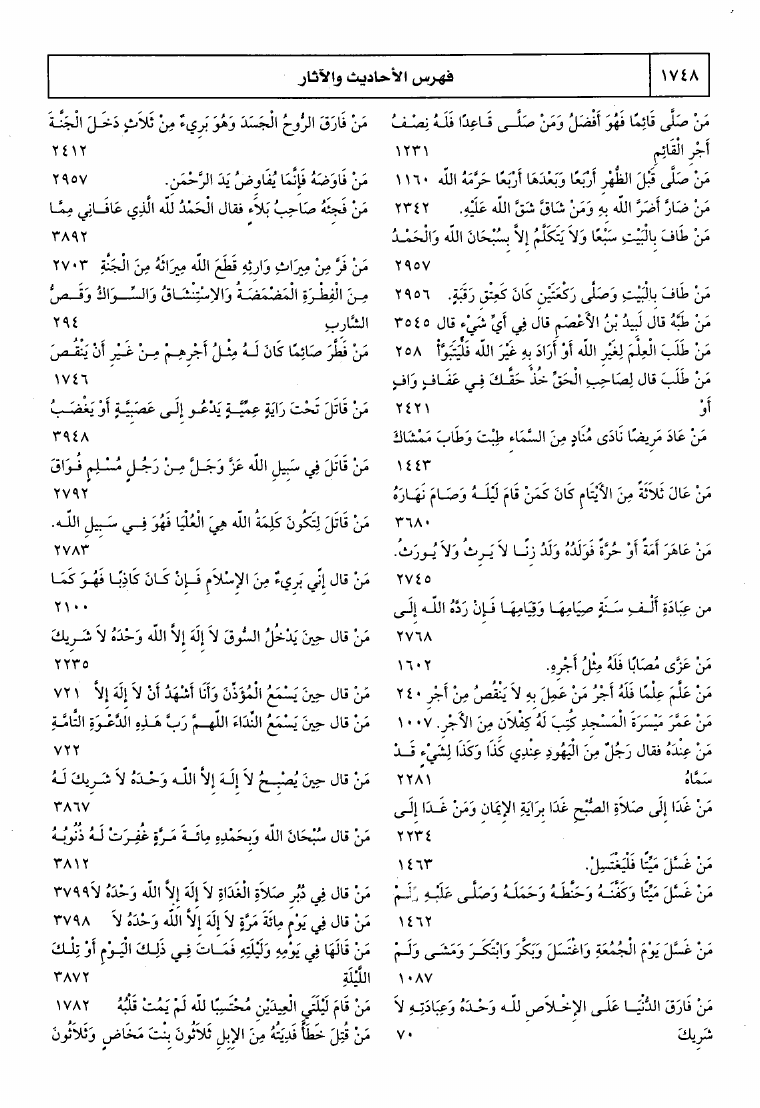 ١٧٤٨
فهرس الأحاديث والآثار
مَنْ صَلَّى قَائِمًا فَهُوَ أَفْضَلُ وَمَنْ صَلَّى قَاعِدًا فَلَهُ نِصْفُ
أَجْرِ الْقَائِمِ ١٢٣١
مَنْ صَلَّى قَبْلَ الظُّهْرِ أَرْبَعًا وَبَعْدَهَا أَرْبَعًا حَرَّمَهُ الله ١١٦٠
مَنْ ضَارَّ أَضَرَّ الله بِهِ وَمَنْ شَاقَّ شَقَّ الله عَلَيْهِ. ٢٣٤٢
مَنْ طَافَ بِالْبَيْتِ سَبْعًا وَلاَ يَتَكَلَّمُ إِلاَّ بِسُبْحَانَ الله وَالْحَمْدُ
٢٩٥٧
مَنْ طَافَ بِالْبَيْتِ وَصَلَّى رَكْعَتَيْنِ كَانَ كَعِتْقِ رَقَبَةٍ. ٢٩٥٦
مَنْ طَبَّهُ قال لَبِيدُ بْنُ الأَعْصَمِ قال فِي أَيِّ شَيْءٍ قال ٣٥٤٥
مَنْ طَلَبَ الْعِلْمَ لِغَيْرِ الله أَوْ أَرَادَ بِهِ غَيْرَ الله فَلْيَتَبَوَّأْ ٢٥٨
مَنْ طَلَبَ قال لِصَاحِبِ الْحَقِّ خُذْ حَقَّكَ فِي عَفَافٍ وَافٍ
أَوْ ٢٤٢١
مَنْ عَادَ مَرِيضًا نَادَى مُنَادٍ مِنَ السَّمَاءِ طِبْتَ وَطَابَ مَمْشَاكَ
١٤٤٣
مَنْ عَالَ ثَلاَثَةً مِنَ الأَيْتَامِ كَانَ كَمَنْ قَامَ لَيْلَهُ وَصَامَ نَهَارَهُ
٣٦٨٠
مَنْ عَاهَرَ أَمَةً أَوْ حُرَّةً فَوَلَدُهُ وَلَدُ زِنًا لاَ يَرِثُ وَلاَ يُورَثُ.
٢٧٤٥
من عِبَادَةِ أَلْفِ سَنَةٍ صِيَامِهَا وَقِيَامِهَا فَإِنْ رَدَّهُ الله إِلَى
٢٧٦٨
مَنْ عَزَّى مُصَابًا فَلَهُ مِثْلُ أَجْرِهِ. ١٦٠٢
مَنْ عَلَّمَ عِلْمًا فَلَهُ أَجْرُ مَنْ عَمِلَ بِهِ لاَ يَنْقُصُ مِنْ أَجْرِ ٢٤٠
مَنْ عَمَّرَ مَيْسَرَةَ الْمَسْجِدِ كُتِبَ لَهُ كِفْلاَنِ مِنَ الأَجْرِ. ١٠٠٧
مَنْ عِنْدَهُ فقال رَجُلٌ مِنَ الْيَهُودِ عِنْدِي كَذَا وَكَذَا لِشَيْءٍ قَدْ
سَمَّاهُ ٢٢٨١
مَنْ غَدَا إِلَى صَلاَةِ الصُّبْحِ غَدَا بِرَايَةِ الإِيمَانِ وَمَنْ غَدَا إِلَى
٢٢٣٤
مَنْ غَسَّلَ مَيِّتًا فَلْيَغْتَسِلْ. ١٤٦٣
مَنْ غَسَّلَ مَيِّتًا وَكَفَّنَهُ وَحَنَّطَهُ وَحَمَلَهُ وَصَلَّى عَلَيْهِ وَلَمْ
١٤٦٢
مَنْ غَسَّلَ يَوْمَ الْجُمُعَةِ وَاغْتَسَلَ وَبَكَّرَ وَابْتَكَرَ وَمَشَى وَلَمْ
١٠٨٧
مَنْ فَارَقَ الدُّنْيَا عَلَى الإِخْلاَصِ لله وَحْدَهُ وَعِبَادَتِهِ لاَ
شَرِيكَ ٧٠
مَنْ فَارَقَ الرُّوحُ الْجَسَدَ وَهُوَ بَرِيءٌ مِنْ ثَلاَثٍ دَخَلَ الْجَنَّةَ
٢٤١٢
مَنْ فَاوَضَهُ فَإِنَّمَا يُفَاوِضُ يَدَ الرَّحْمَنِ. ٢٩٥٧
مَنْ فَجِئَهُ صَاحِبُ بَلاَءٍ فقال الْحَمْدُ لله الَّذِي عَافَانِي مِمَّا
٣٨٩٢
مَنْ فَرَّ مِنْ مِيرَاثِ وَارِثِهِ قَطَعَ الله مِيرَاثَهُ مِنَ الْجَنَّةِ ٢٧٠٣
مِنَ الْفِطْرَةِ الْمَضْمَضَةُ وَالاِسْتِنْشَاقُ وَالسِّوَاكُ وَقَصُّ
الشَّارِبِ ٢٩٤
مَنْ فَطَّرَ صَائِمًا كَانَ لَهُ مِثْلُ أَجْرِهِمْ مِنْ غَيْرِ أَنْ يَنْقُصَ
١٧٤٦
مَنْ قَاتَلَ تَحْتَ رَايَةٍ عِمِّيَّةٍ يَدْعُو إِلَى عَصَبِيَّةٍ أَوْ يَغْضَبُ
٣٩٤٨
مَنْ قَاتَلَ فِي سَبِيلِ الله عَزَّ وَجَلَّ مِنْ رَجُلٍ مُسْلِمٍ فُوَاقَ
٢٧٩٢
مَنْ قَاتَلَ لِتَكُونَ كَلِمَةُ الله هِيَ الْعُلْيَا فَهُوَ فِي سَبِيلِ الله.
٢٧٨٣
مَنْ قال إِنِّي بَرِيءٌ مِنَ الإِسْلاَمِ فَإِنْ كَانَ كَاذِبًا فَهُوَ كَمَا
٢١٠٠
مَنْ قال حِينَ يَدْخُلُ السُّوقَ لاَ إِلَهَ إِلاَّ الله وَحْدَهُ لاَ شَرِيكَ
٢٢٣٥
مَنْ قال حِينَ يَسْمَعُ الْمُؤَذِّنَ وَأَنَا أَشْهَدُ أَنْ لاَ إِلَهَ إِلاَّ ٧٢١
مَنْ قال حِينَ يَسْمَعُ النِّدَاءَ اللَّهمَّ رَبَّ هَذِهِ الدَّعْوَةِ التَّامَّةِ
٧٢٢
مَنْ قال حِينَ يُصْبِحُ لاَ إِلَهَ إِلاَّ الله وَحْدَهُ لاَ شَرِيكَ لَهُ
٣٨٦٧
مَنْ قال سُبْحَانَ الله وَبِحَمْدِهِ مِائَةَ مَرَّةٍ غُفِرَتْ لَهُ ذُنُوبُهُ
٣٨١٢
مَنْ قال فِي دُبُرِ صَلاَةِ الْغَدَاةِ لاَ إِلَهَ إِلاَّ الله وَحْدَهُ لاَ ٣٧٩٩
مَنْ قال فِي يَوْمٍ مِائَةَ مَرَّةٍ لاَ إِلَهَ إِلاَّ الله وَحْدَهُ لاَ ٣٧٩٨
مَنْ قَالَهَا فِي يَوْمِهِ وَلَيْلَتِهِ فَمَاتَ فِي ذَلِكَ الْيَوْمِ أَوْ تِلْكَ
اللَّيْلَةِ ٣٨٧٢
مَنْ قَامَ لَيْلَتَيِ الْعِيدَيْنِ مُحْتَسِبًا لله لَمْ يَمُتْ قَلْبُهُ ١٧٨٢
مَنْ قُتِلَ خَطَأً فَدِيَتُهُ مِنَ الإِبِلِ ثَلاَثُونَ بِنْتَ مَخَاضٍ وَثَلاَثُونَ